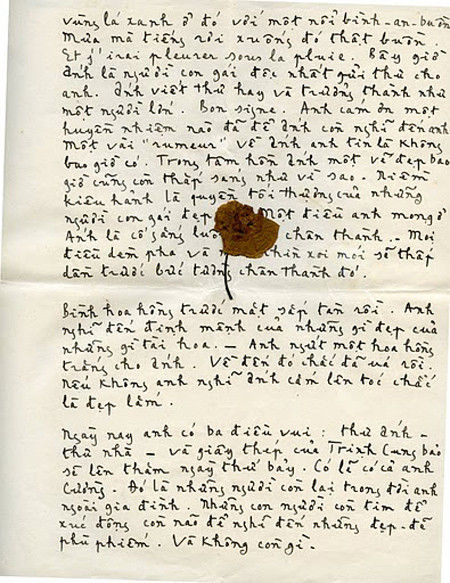 vùng lá xanh ở đó với một nỗi bình-an-buồn
Mưa mà tiếng rơi xuống đó thật buồn.
Et j'irai pleurer sous la pluie. Bây giờ
Ánh là người con gái độc nhất gửi thư cho
anh. Ánh viết thư hay và trưởng thành như
một người lớn. Bon signe. Anh cám ơn một
huyền nhiệm nào đã để Ánh còn nghĩ đến anh
Một vài "rumeur" về Ánh anh tin là không
bao giờ có. Trong tâm hồn Ánh một vẻ đẹp bao
giờ cũng còn thắp sáng như vì sao. Niềm
kiêu hãnh là quyền tối thượng của những
người con gái đẹp Một điều anh mong ở
Ánh là cố gắng chân thành. Mọi
điều dèm pha và xoi mói sẽ thấp
dần trước bức tường chân thành đó.
Bình hoa hồng trước mặt sắp tàn rồi. Anh
nghĩ đến định mệnh của những gì đẹp của
những gì tài hoa. – Anh ngắt một hoa hồng
trắng cho Ánh. Về đến đó chắc đã úa rồi.
Nếu không anh nghĩ Ánh cắm lên tóc chắc
là đẹp lắm.
Ngày nay anh có ba điều vui : thư Ánh –
thư nhà – và giấy thép của Trịnh Cung báo
sẽ lên thăm ngày thứ bảy. Có lẽ có cả anh
Cường. Đó là những người còn lại trong đời anh
ngoài gia đình. Những con người còn tim để
xúc động còn não để nghĩ đến những đẹp-đẽ
phù phiếm. Và không còn gì.